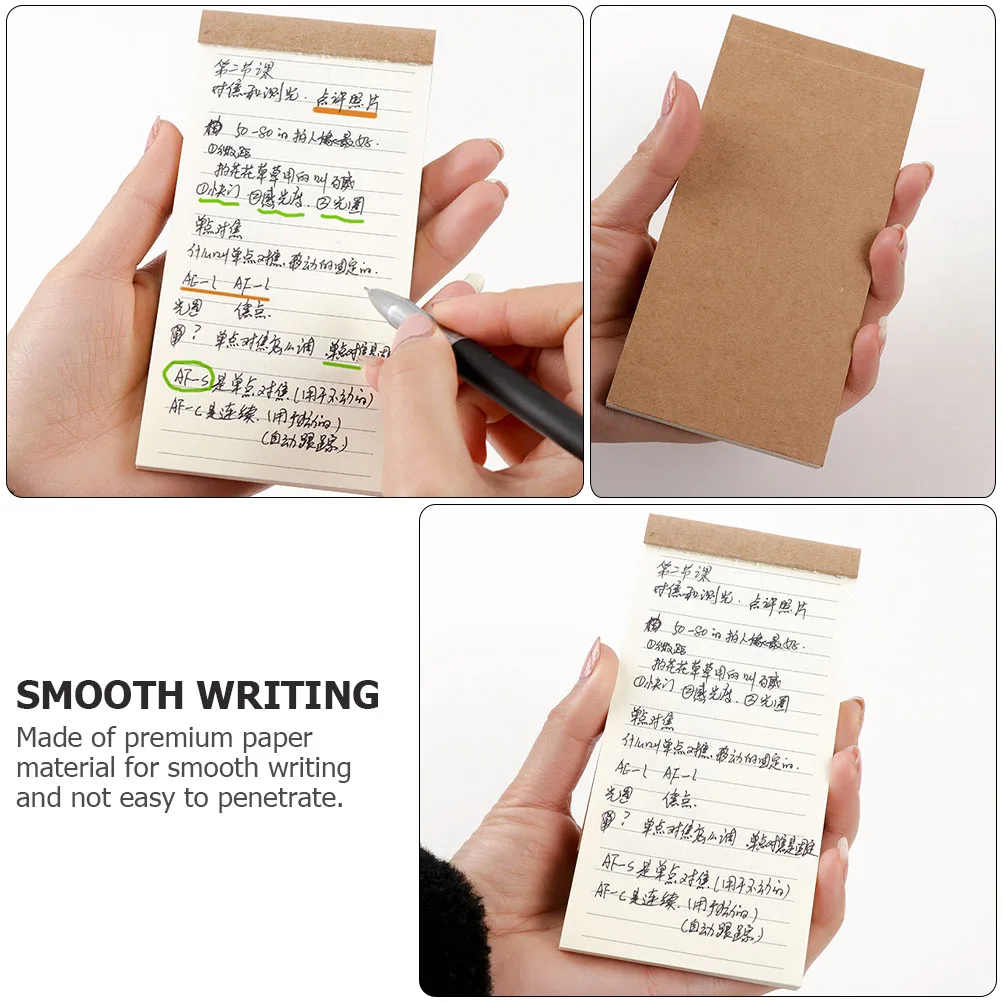 第二节课
对焦和测光. 点评照片
50-80 拍人像最好.
①微距
拍花花草草用的叫百威
①快门 ②感光度. ③光圈
单点对焦
什么叫单点对焦, 移动的固定的.
AF-l
光圈 焦点.
? 单点对焦怎么调 单点对焦是固
AF-S是单点对焦(用于不动的)
AF-C是连续.(用于动的)
(自动跟踪)
SMOOTH WRITING
Made of premium paper
material for smooth writing
and not easy to penetrate.
第二节课
对焦和测光. 点评照片
50-80 拍人像最好.
①微距
拍花花草草用的叫百威
①快门 ②感光度. ③光圈
单点对焦
什么叫单点对焦, 移动的固定的.
AF-l
光圈 焦点.
? 单点对焦怎么调 单点对焦是固定
AF-S是单点对焦(用于不动的)
AF-C是连续.(用于动的)
(自动跟踪)